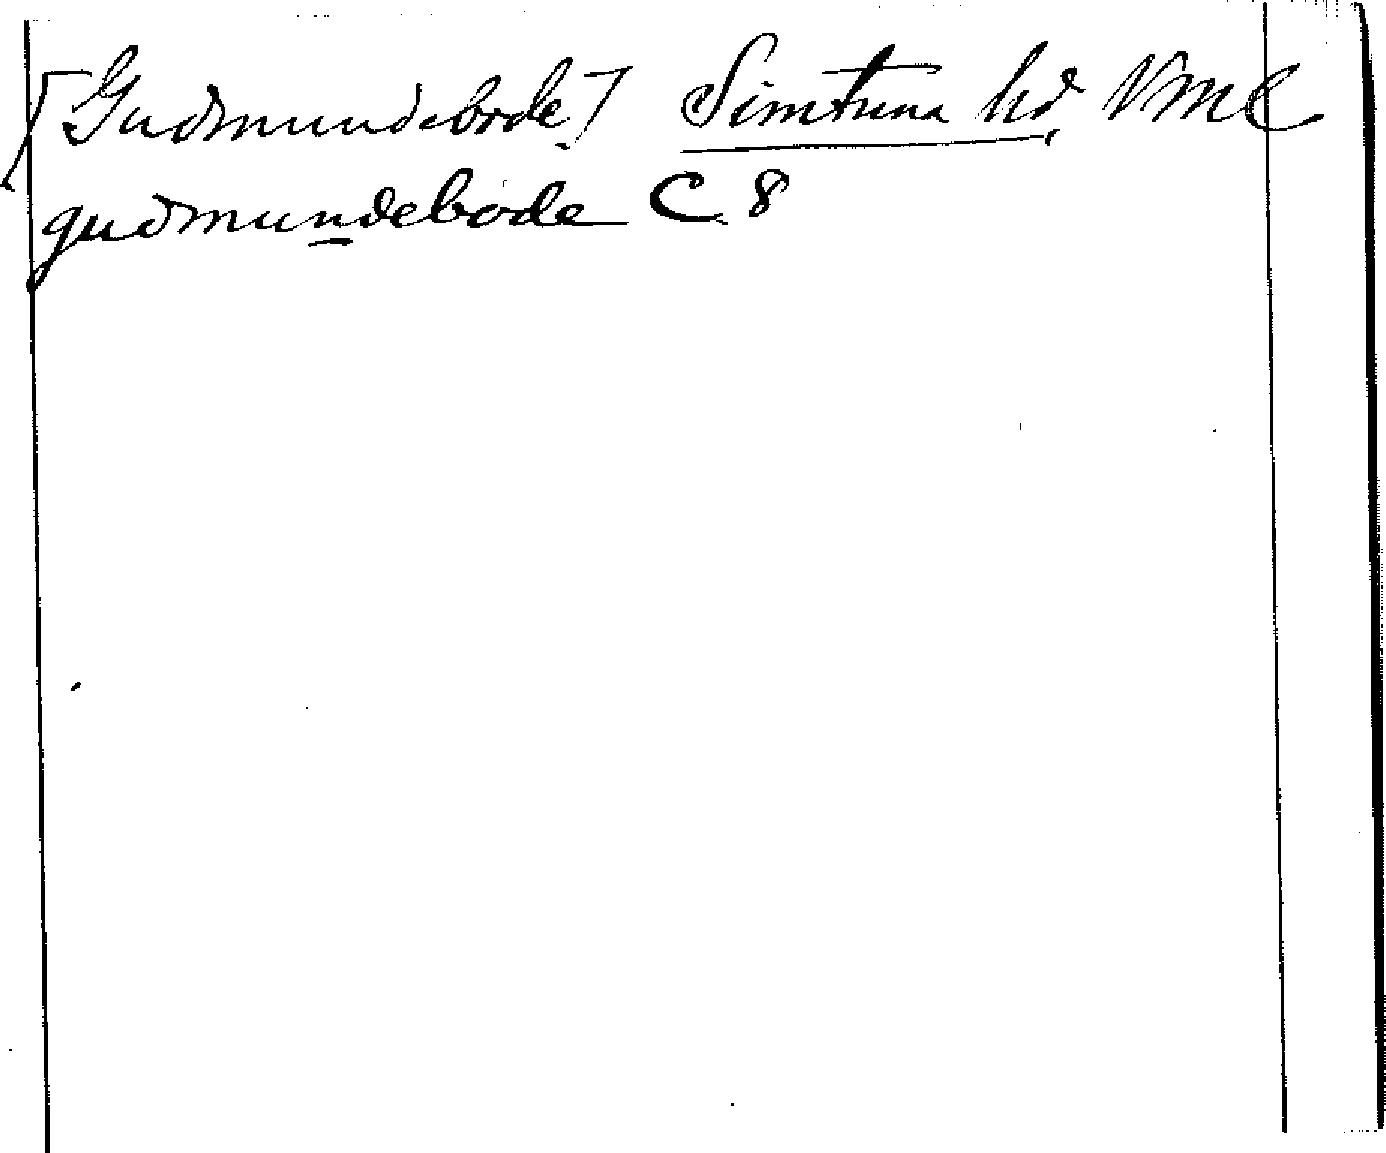 [Gudmundebode] Simtuna hd VML
gudmundebode C 8